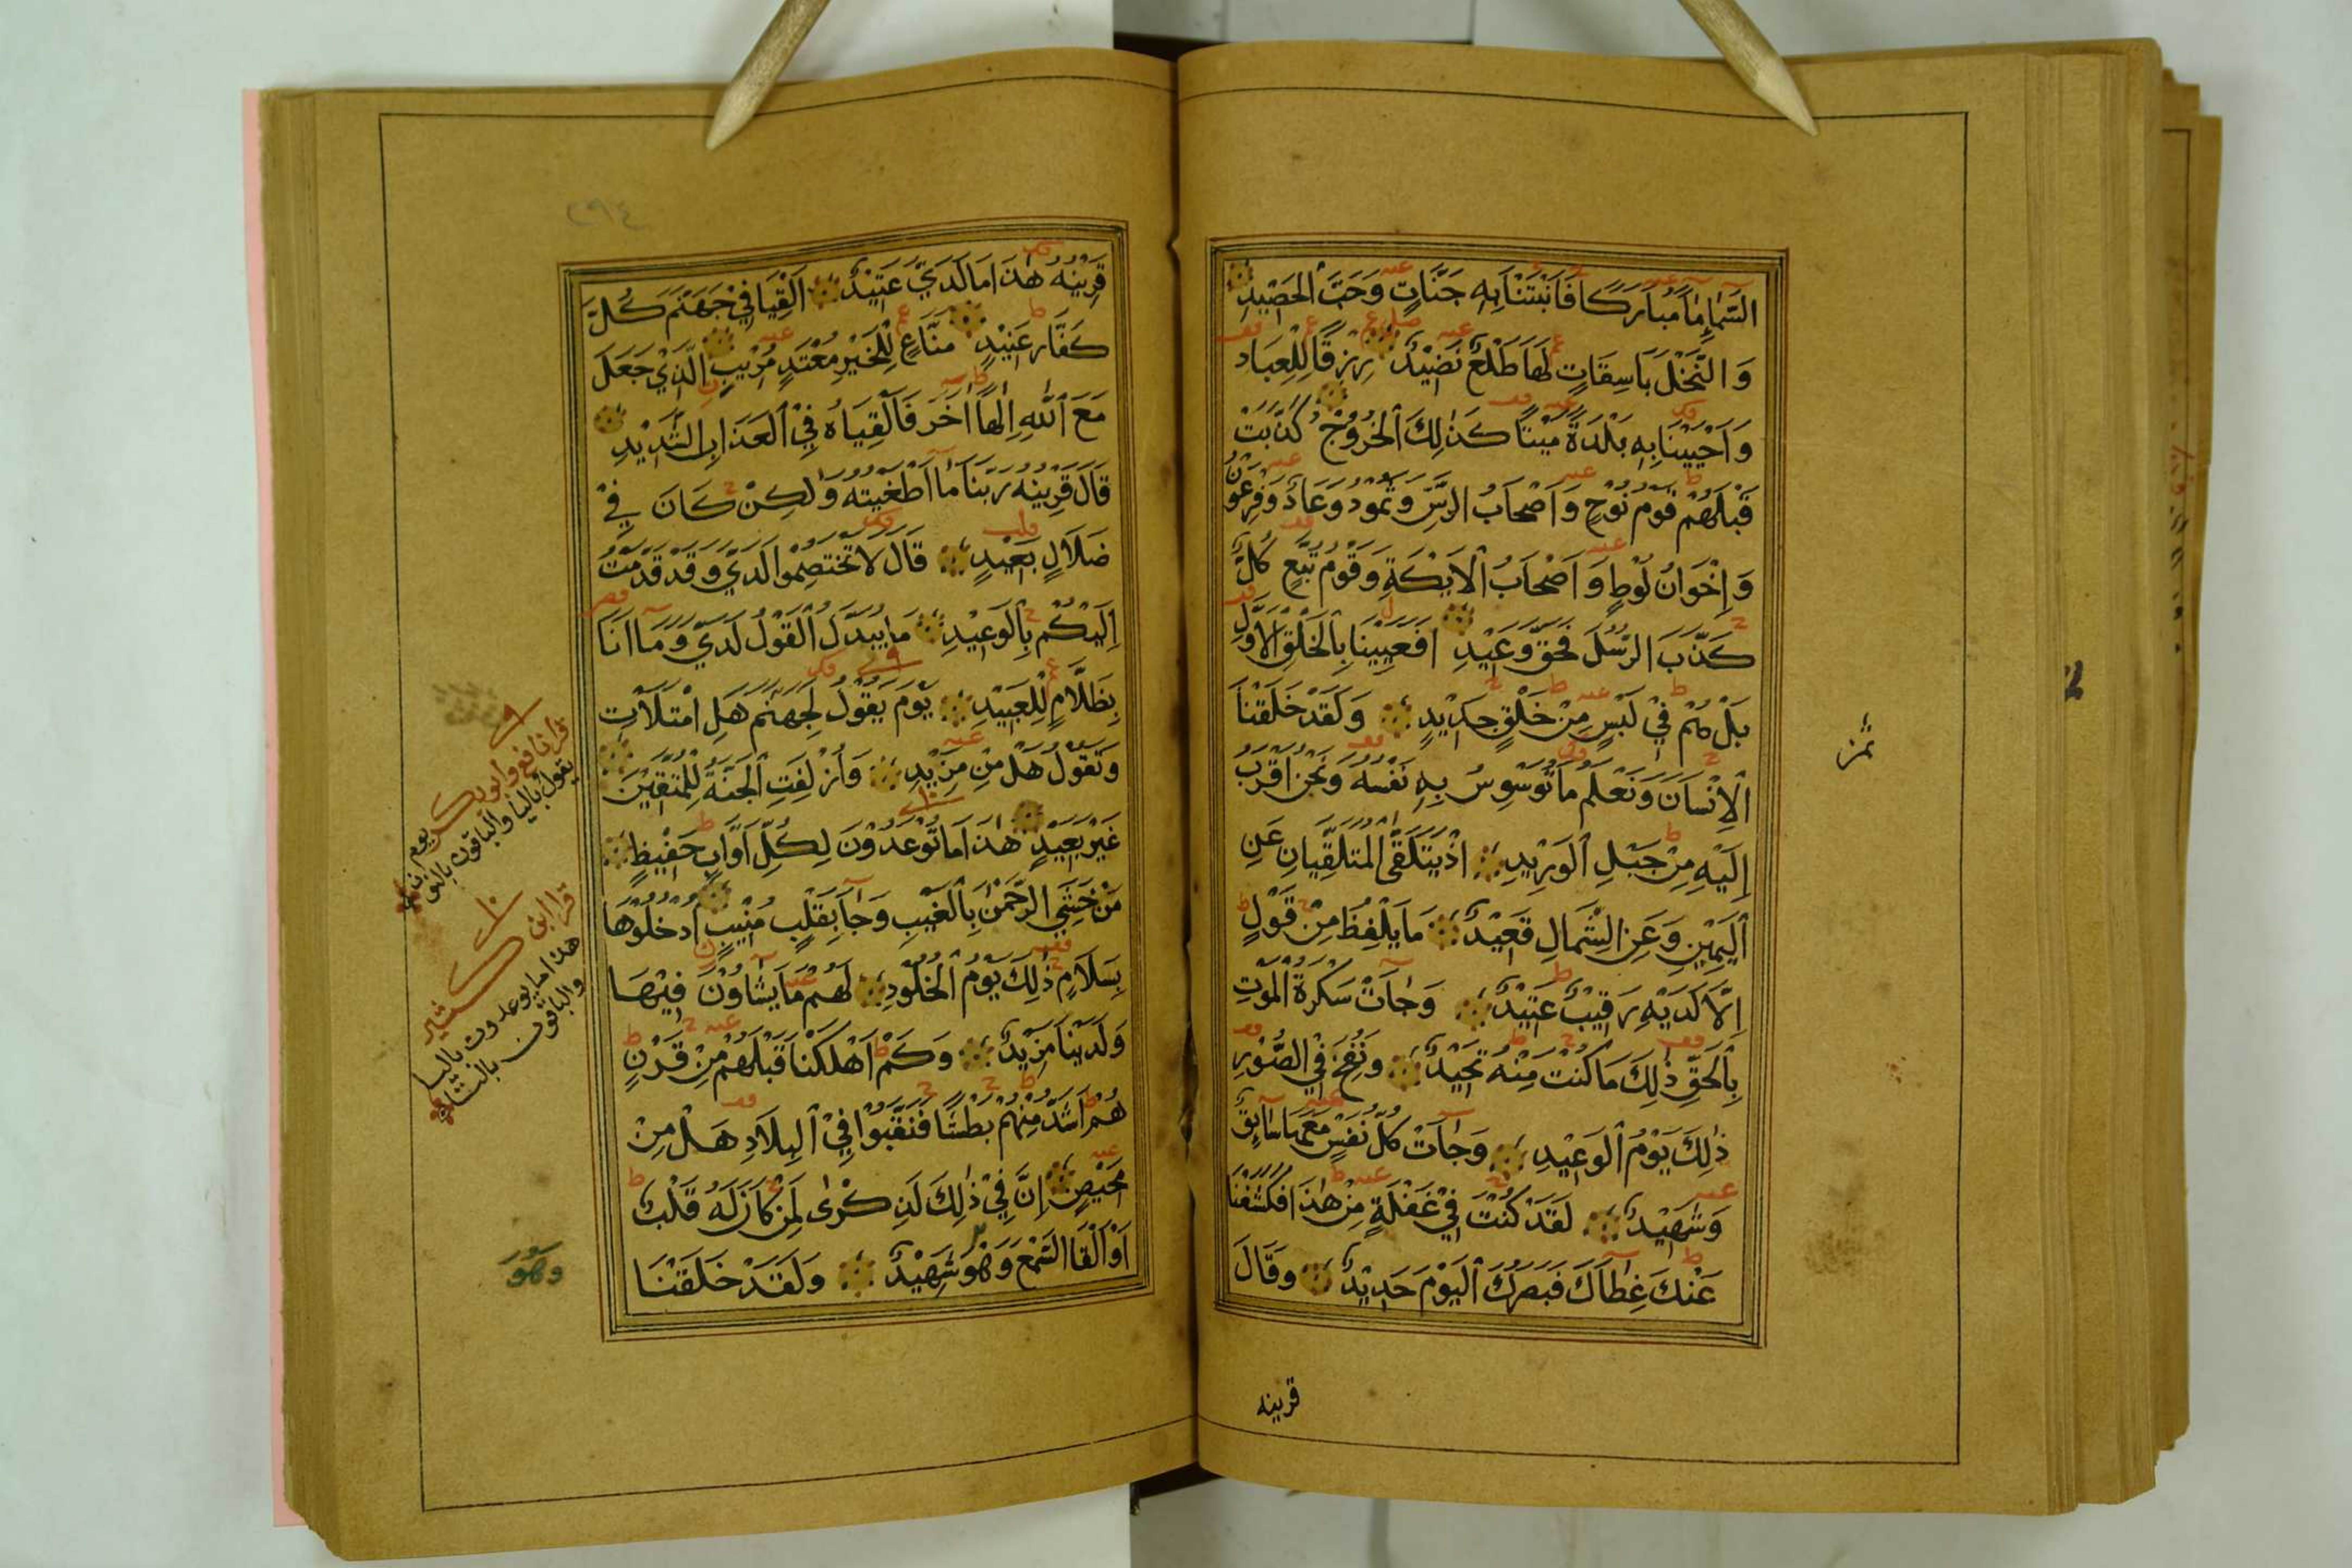 السَّمَاءِ مَاءً مُبَارَكًا فَأَنْبَتْنَا بِهِ جَنَّاتٍ وَحَبَّ الْحَصِيدِ
وَالنَّخْلَ بَاسِقَاتٍ لَهَا طَلْعٌ نَضِيدٌ رِزْقًا لِلْعِبَادِ
وَأَحْيَيْنَا بِهِ بَلْدَةً مَيْتًا كَذٰلِكَ الْخُرُوجُ كَذَّبَتْ
قَبْلَهُمْ قَوْمُ نُوحٍ وَأَصْحَابُ الرَّسِّ وَثَمُودُ وَعَادٌ وَفِرْعَوْنُ
وَإِخْوَانُ لُوطٍ وَأَصْحَابُ الْأَيْكَةِ وَقَوْمُ تُبَّعٍ كُلٌّ
كَذَّبَ الرُّسُلَ فَحَقَّ وَعِيدِ أَفَعَيِينَا بِالْخَلْقِ الْأَوَّلِ
بَلْ هُمْ فِي لَبْسٍ مِنْ خَلْقٍ جَدِيدٍ وَلَقَدْ خَلَقْنَا
الْإِنْسَانَ وَنَعْلَمُ مَا تُوَسْوِسُ بِهِ نَفْسُهُ وَنَحْنُ أَقْرَبُ
إِلَيْهِ مِنْ حَبْلِ الْوَرِيدِ إِذْ يَتَلَقَّى الْمُتَلَقِّيَانِ عَنِ
الْيَمِينِ وَعَنِ الشِّمَالِ قَعِيدٌ مَا يَلْفِظُ مِنْ قَوْلٍ
إِلَّا لَدَيْهِ رَقِيبٌ عَتِيدٌ وَجَاءَتْ سَكْرَةُ الْمَوْتِ
بِالْحَقِّ ذٰلِكَ مَا كُنْتَ مِنْهُ تَحِيدُ وَنُفِخَ فِي الصُّورِ
ذٰلِكَ يَوْمُ الْوَعِيدِ وَجَاءَتْ كُلُّ نَفْسٍ مَعَهَا سَائِقٌ
وَشَهِيدٌ لَقَدْ كُنْتَ فِي غَفْلَةٍ مِنْ هٰذَا فَكَشَفْنَا
عَنْكَ غِطَاءَكَ فَبَصَرُكَ الْيَوْمَ حَدِيدٌ وَقَالَ
قرينه
ثمن
قَرِينُهُ هٰذَا مَا لَدَيَّ عَتِيدٌ أَلْقِيَا فِي جَهَنَّمَ كُلَّ
كَفَّارٍ عَنِيدٍ مَنَّاعٍ لِلْخَيْرِ مُعْتَدٍ مُرِيبٍ الَّذِي جَعَلَ
مَعَ اللّٰهِ إِلٰهًا آخَرَ فَأَلْقِيَاهُ فِي الْعَذَابِ الشَّدِيدِ
قَالَ قَرِينُهُ رَبَّنَا مَا أَطْغَيْتُهُ وَلٰكِنْ كَانَ فِي
ضَلَالٍ بَعِيدٍ قَالَ لَا تَخْتَصِمُوا لَدَيَّ وَقَدْ قَدَّمْتُ
إِلَيْكُمْ بِالْوَعِيدِ مَا يُبَدَّلُ الْقَوْلُ لَدَيَّ وَمَا أَنَا
بِظَلَّامٍ لِلْعَبِيدِ يَوْمَ يَقُولُ لِجَهَنَّمَ هَلِ امْتَلَأْتِ
وَتَقُولُ هَلْ مِنْ مَزِيدٍ وَأُزْلِفَتِ الْجَنَّةُ لِلْمُتَّقِينَ
غَيْرَ بَعِيدٍ هٰذَا مَا تُوعَدُونَ لِكُلِّ أَوَّابٍ حَفِيظٍ
مَنْ خَشِيَ الرَّحْمٰنَ بِالْغَيْبِ وَجَاءَ بِقَلْبٍ مُنِيبٍ ادْخُلُوهَا
بِسَلَامٍ ذٰلِكَ يَوْمُ الْخُلُودِ لَهُمْ مَا يَشَاؤُونَ فِيهَا
وَلَدَيْنَا مَزِيدٌ وَكَمْ أَهْلَكْنَا قَبْلَهُمْ مِنْ قَرْنٍ
هُمْ أَشَدُّ مِنْهُمْ بَطْشًا فَنَقَّبُوا فِي الْبِلَادِ هَلْ مِنْ
مَحِيصٍ إِنَّ فِي ذٰلِكَ لَذِكْرٰى لِمَنْ كَانَ لَهُ قَلْبٌ
أَوْ أَلْقَا السَّمْعَ وَهُوَ شَهِيدٌ وَلَقَدْ خَلَقْنَا
قرا نافع وابوبكر يوم
يقول بالياء والباقون بالنون
قرا ابن كثير
هذا ما يوعدون باليا
والباقون بالتاء
وَهْوَ